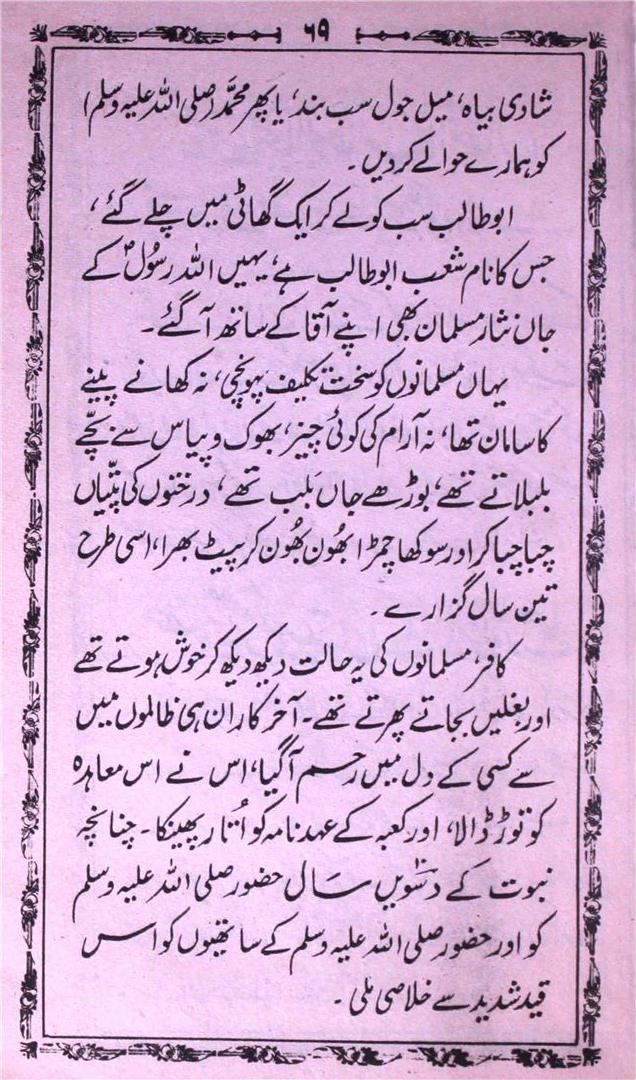 ۶۹
شادی بیاہ، میل جول سب بند، یا پھر محمّد (صلی اللہ علیہ وسلم)
کو ہمارے حوالے کر دیں ۔
ابو طالب سب کو لے کر ایک گھاٹی میں چلے گئے ،
جس کا نام شعب ابو طالب ہے، یہیں اللہ رسُولؐ کے
جاں نثار مسلمان بھی اپنے آقا کے ساتھ آ گئے ۔
یہاں مسلمانوں کو سخت تکلیف پہونچی، نہ کھانے پینے
کا سامان تھا، نہ آرام کی کوئی چیز، بھوک و پیاس سے بچّے
بلبلاتے تھے، بوڑھے جاں بَلب تھے، درختوں کی پتّیاں
چبا چبا کر اور سوکھا چمڑا بھُون بھُون کر پیٹ بھرا، اسی طرح
تین سال گزارے ۔
کافر مسلمانوں کی یہ حالت دیکھ دیکھ کر خوش ہوتے تھے
اور بغلیں بجاتے پھرتے تھے ۔ آخر کار ان ہی ظالموں میں
سے کسی کے دل میں رحم آ گیا، اس نے اس معاہدہ
کو توڑ ڈالا، اور کعبہ کے عہدنامہ کو اُتار پھینکا ۔ چنانچہ
نبوت کے دسویں سال حضور صلی اللہ علیہ وسلم
کو اور حضور صلی اللہ علیہ وسلم کے ساتھیوں کو اس
قید شدید سے خلاصی ملی ۔